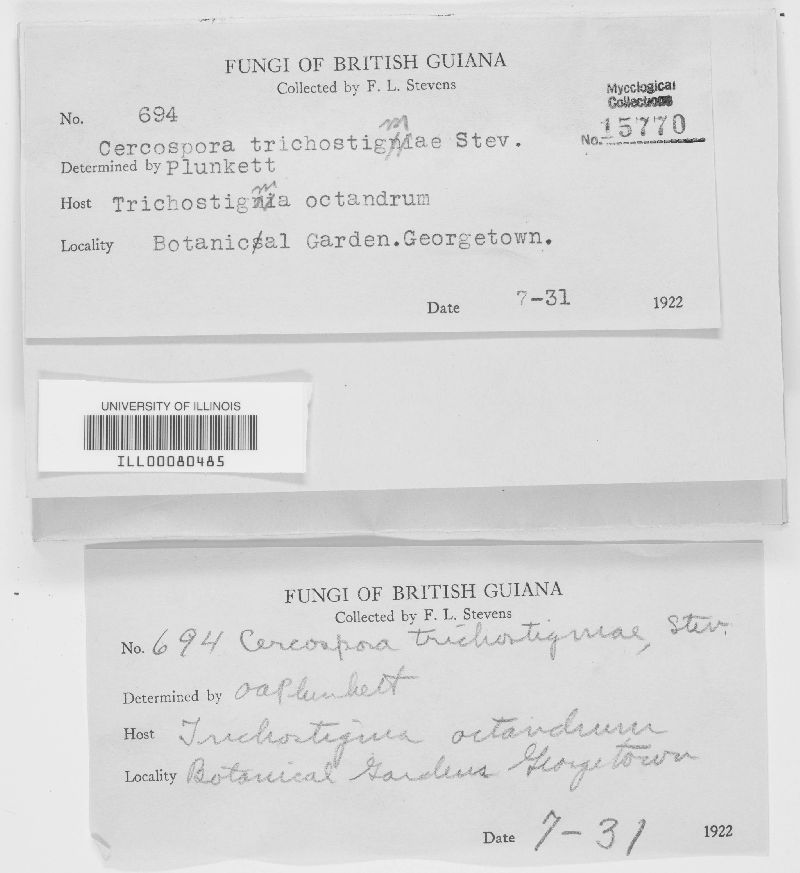 FUNGI OF BRITISH GUIANA
Collected by F. L. Stevens
Mycological
Collections
No. 15770
No. 694
Cercospora trichostigmae Stev.
Determined by Plunkett
Host Trichostigma octandrum
Locality Botanical Garden.Georgetown.
Date 7-31 1922
UNIVERSITY OF ILLINOIS
ILL00080485
FUNGI OF BRITISH GUIANA
Collected by F. L. Stevens
No. 694 Cercospora trichostigmae, Stev.
Determined by OAPlunkett
Host Trichostigma octandrum
Locality Botanical Gardens Georgetown
Date 7-31 1922